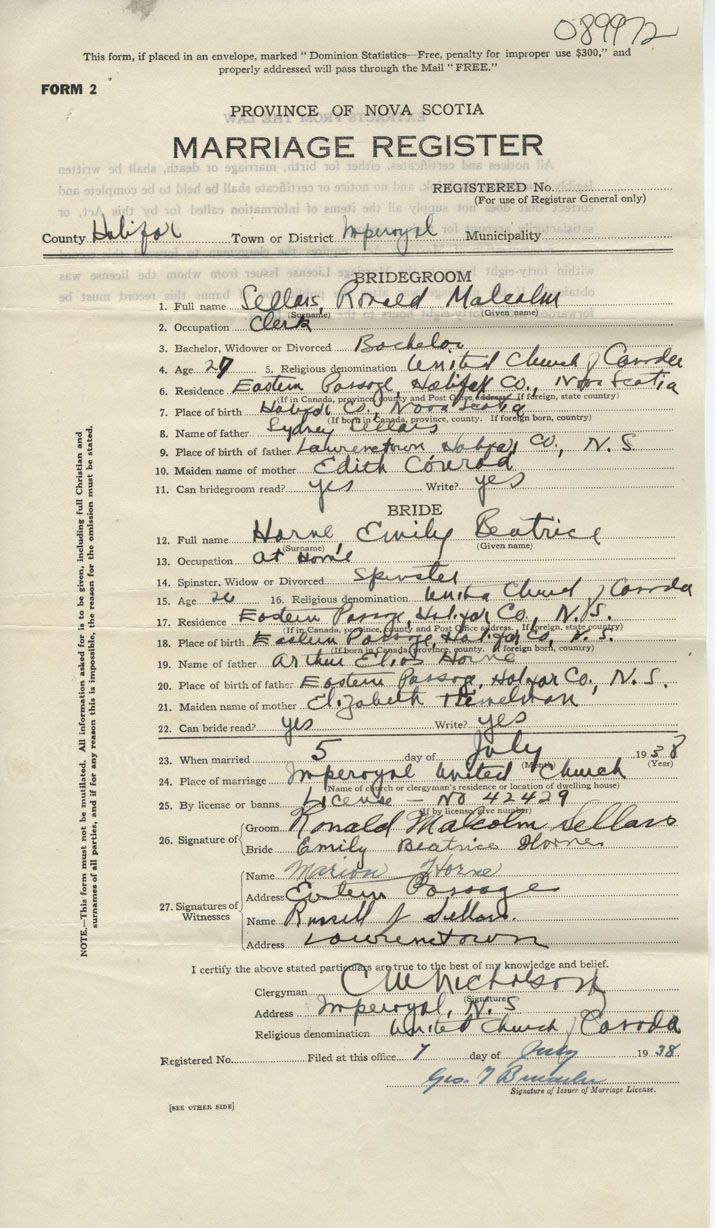 089972
This form, if placed in an envelope, marked "Dominion Statistics—Free, penalty for improper use $300," and
properly addressed will pass through the Mail "FREE."
FORM 2
PROVINCE OF NOVA SCOTIA
MARRIAGE REGISTER
REGISTERED No.
(For use of Registrar General only)
County Halifax Town or District Imperoyal Municipality
BRIDEGROOM
1. Full name Sellars, Ronald Malcolm
(Surname) (Given name)
2. Occupation Clerk
3. Bachelor, Widower or Divorced Bachelor
4. Age 27 5. Religious denomination United Church of Canada
6. Residence Eastern Passage, Halifax Co., Nova Scotia
(If in Canada, province, county and Post Office address. If foreign, state country)
7. Place of birth Halifax Co., Nova Scotia
(If born in Canada, province, county. If foreign born, country)
8. Name of father Sydney Sellars
9. Place of birth of father Lawrencetown Halifax Co., N.S.
10. Maiden name of mother Edith Conrad
11. Can bridegroom read? yes Write? yes
BRIDE
12. Full name Horne Emily Beatrice
(Surname) (Given name)
13. Occupation at Home
14. Spinster, Widow or Divorced Spinster
15. Age 26 16. Religious denomination United Church of Canada
17. Residence Eastern Passage, Halifax Co., N.S.
(If in Canada, province, county and Post Office address. If foreign, state country)
18. Place of birth Eastern Passage, Halifax Co., N.S.
(If born in Canada, province, county. If foreign born, country)
19. Name of father Arthur Elias Horne
20. Place of birth of father Eastern Passage, Halifax Co., N.S.
21. Maiden name of mother Elizabeth
22. Can bride read? yes Write? yes
23. When married 5 day of July 1938
(Month) (Year)
24. Place of marriage Imperoyal United Church
(Name of church or clergyman's residence or location of dwelling house)
25. By license or banns License - No 42429
(If by license, give number)
26. Signature of Groom Ronald Malcolm Sellars
Bride Emily Beatrice Horne
27. Signatures of Witnesses
Name Marion Horne
Address Eastern Passage
Name Russell J Sellars.
Address Lawrencetown
I certify the above stated particulars are true to the best of my knowledge and belief.
Clergyman CW Nicholson
(Signature)
Address Imperoyal, N.S
Religious denomination United Church of Canada
Registered No. Filed at this office 7 day of July 1938
Geo. T
Signature of Issuer of Marriage License.
[SEE OTHER SIDE]
NOTE.—This form must not be mutilated. All information asked for is to be given, including full Christian and
surnames of all parties, and if for any reason this is impossible, the reason for the omission must be stated.